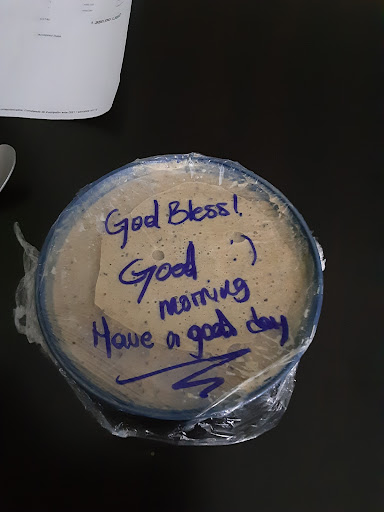 God Bless!
Good :)
morning
Have a good day